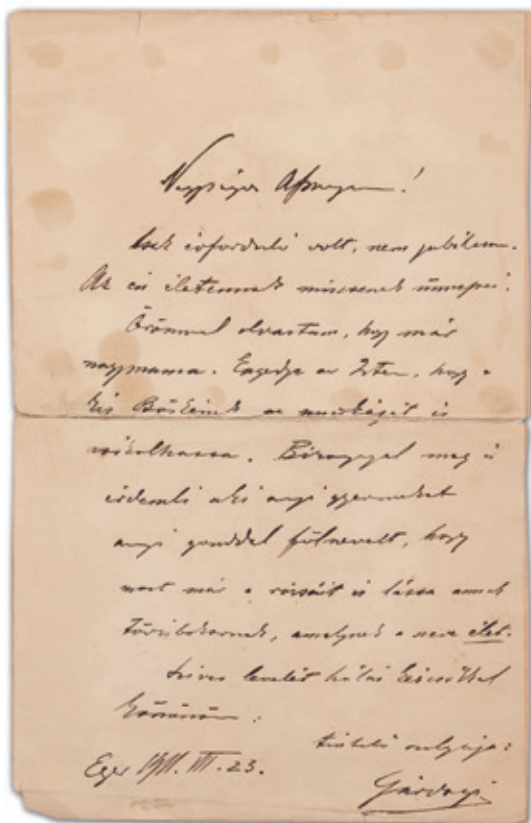 Nagyságos Asszonyom!
Csak évforduló volt, nem jubileum.
Az én életemnek nincsenek ünnepei.
Örömmel olvastam, hogy már
nagymama. Engedje az Isten, hogy a
kis Bözsének az unokáját is
csókolhassa. Bizonynyal meg is
érdemli aki anyi gyermeket
anyi gonddal fölnevelt, hogy
most már a rózsáit is lássa annak
tövisbokornak, amelynek a neve élet.
Szives levelét hálás kézcsókkal
köszönöm:
tisztelő szolgája:
Eger 1911. III. 23.
Gárdonyi